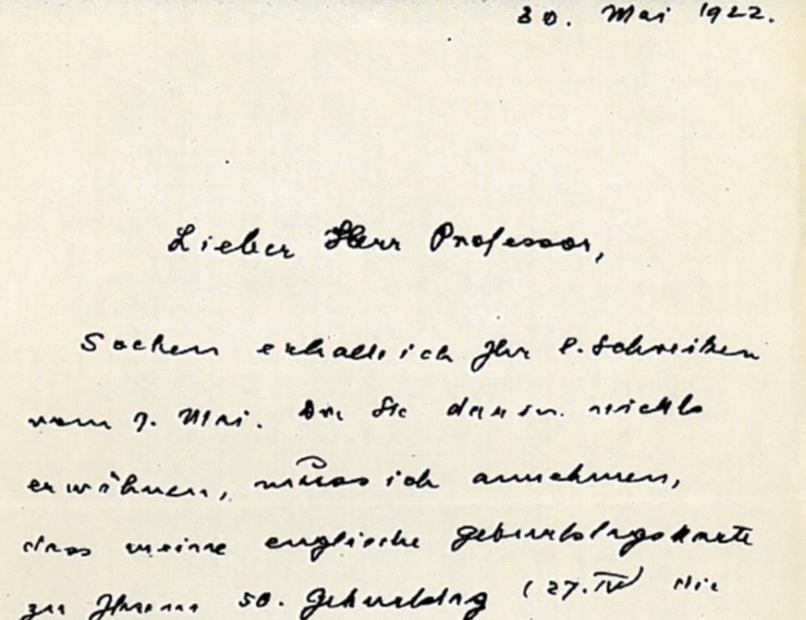 30. Mai 1922.
Lieber Herr Professor,
Soeben erhalte ich Ihr l. Schreiben
vom 7. Mai. Da Sie darin nichts
erwähnen, muss ich annehmen,
dass meine englische Geburtstagskarte
zu Ihrem 50. Geburtstag (27.IV) Sie